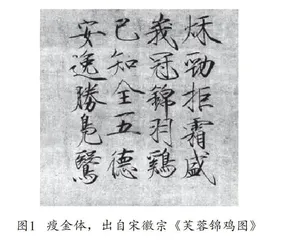 秋勁拒霜盛
峩冠錦羽鷄
已知全五德
安逸勝鳧鷖
图1 瘦金体，出自宋徽宗《芙蓉锦鸡图》